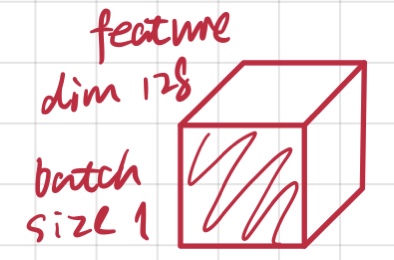 feature
dim 128
batch
size 1